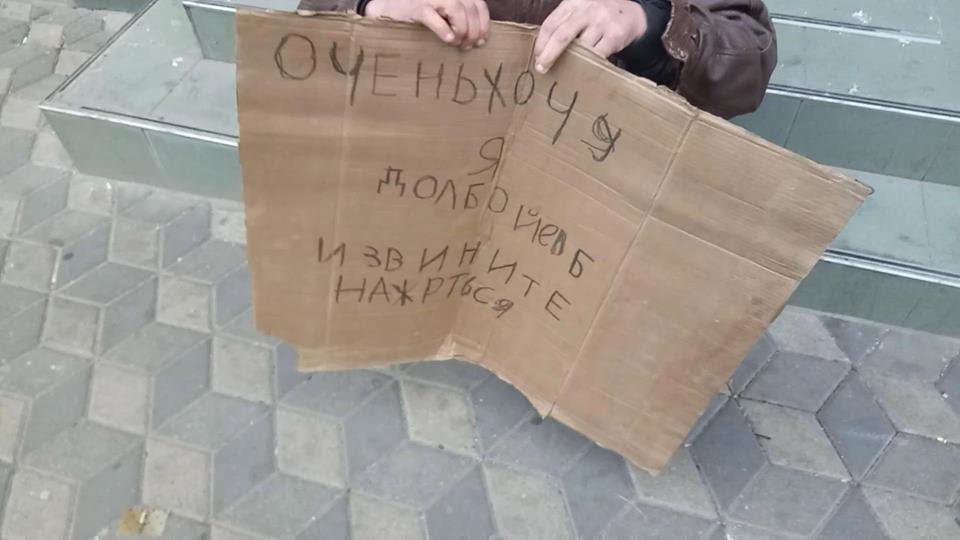 ОЧЕНЬ ХОЧУ
Я
ДОЛБОЙЕБ
ИЗВИНИТЕ
НАЖРТЬСЯ